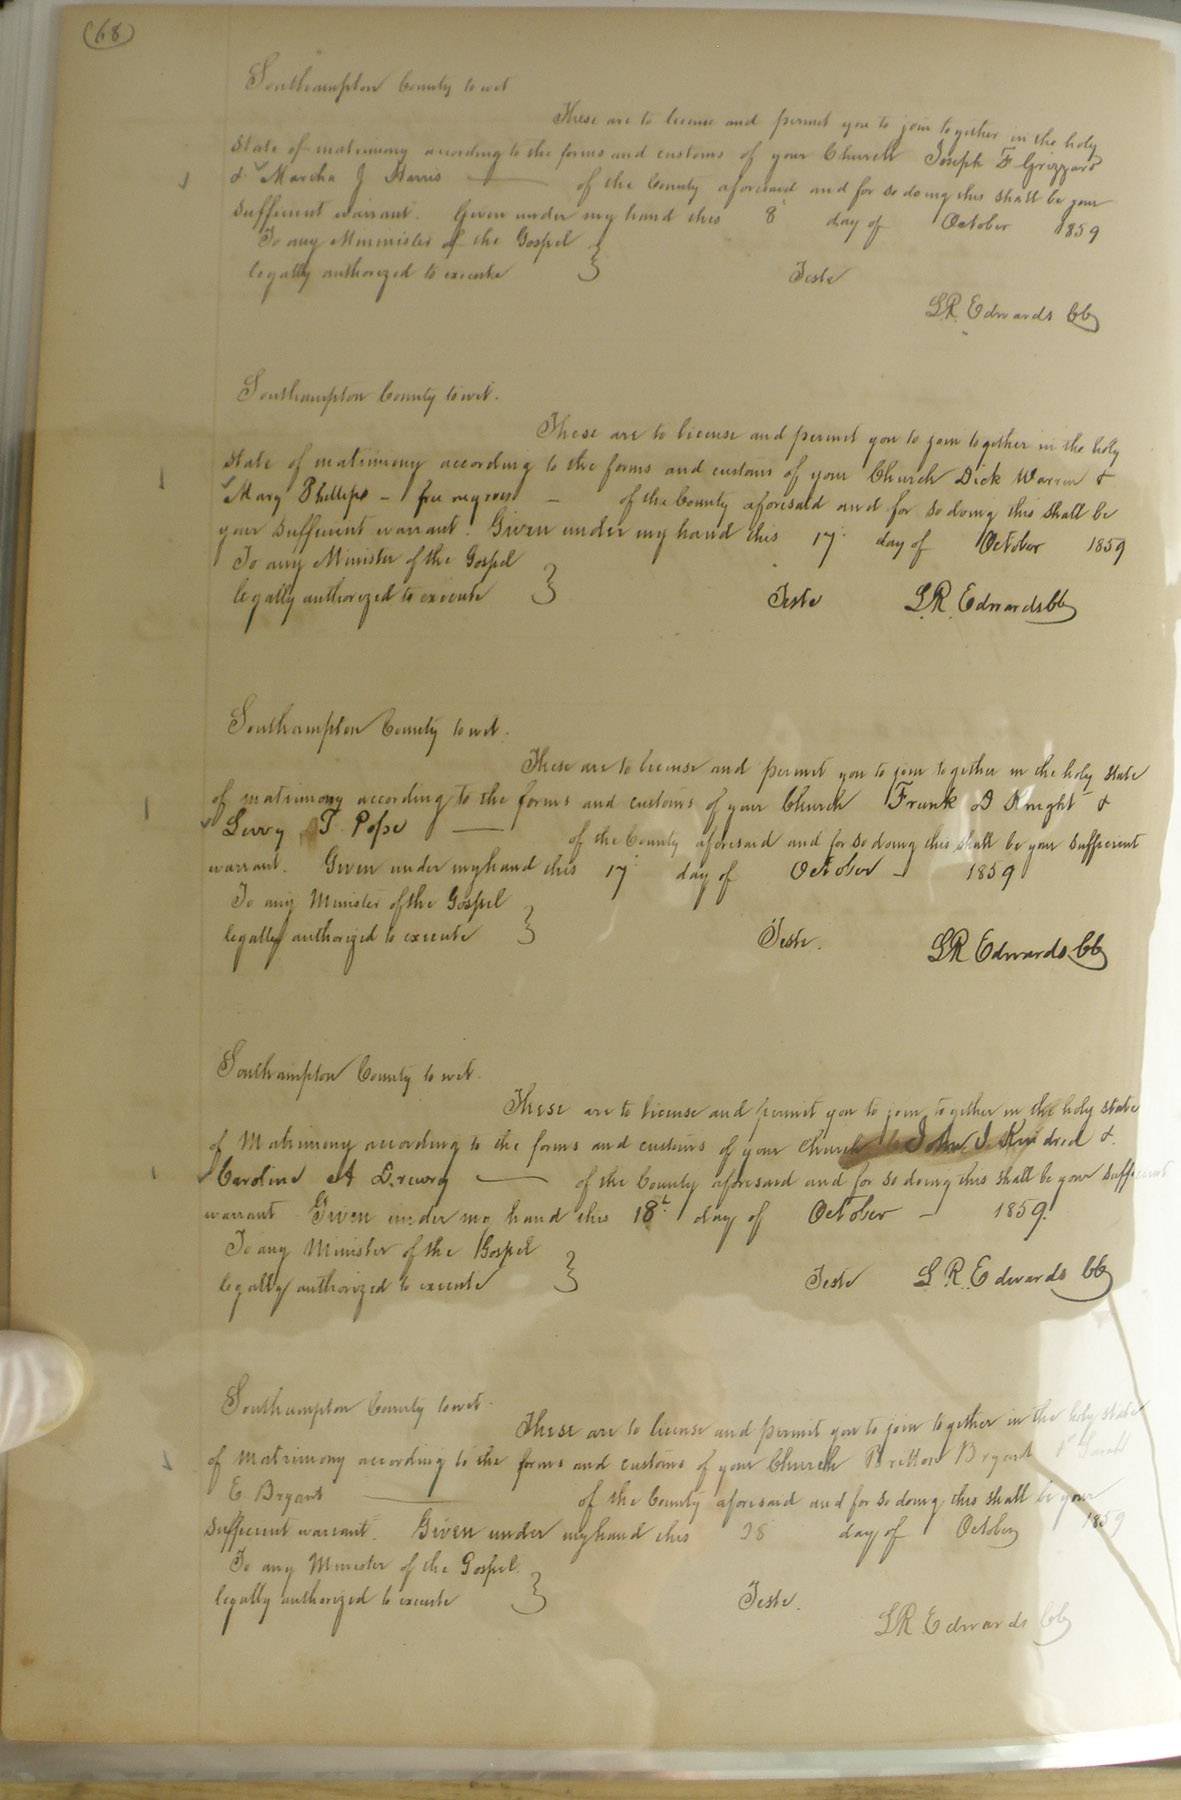 (68)
Southampton County to wit
These are to license and permit you to join together in the holy
State of matrimony according to the forms and customs of your Church Joseph F Grizzard
& Martha J Harris of the County aforesaid and for so doing this shall be your
sufficient warrant. Given under my hand this 8 day of October 1859
To any Mininister of the Gospel
legally authorized to execute
Teste
LR. Edwards CC
Southampton County to wit.
These are to license and permit you to join together in the holy
state of matrimony according to the forms and customs of your Church Dick Warren &
Mary Phillips – free negroes – of the County aforesaid and for so doing this shall be
your sufficient warrant. Given under my hand this 17 day of October 1859
To any Minister of the Gospel
legally authorized to execute
Teste L.R. Edwards CC
Southampton County to wit.
These are to license and permit you to join together in the holy state
of matrimony according to the forms and customs of your Church Frank D Knight &
T. Pope of the County aforesaid and for so doing this shall be your sufficient
warrant. Given under my hand this 17 day of October – 1859
To any Minister of the Gospel
legally authorized to execute
Teste.
LR Edwards CC
Southampton County to wit.
These are to license and permit you to join together in the holy state
of Matrimony according to the forms and customs of your Church John J. Kindred &
Caroline A Drewry of the County aforesaid and for so doing this shall be your sufficient
warrant Given under my hand this 18t day of October – 1859.
To any Minister of the Gospel
legally authorized to execute
Teste L R. Edwards CC
Southampton County to wit.
These are to license and permit you to join together in the holy state
of matrimony according to the forms and customs of your Church Britton Bryant & Sarah
E Bryant of the County aforesaid and for so doing this shall be your
sufficient warrant. Given under my hand this 28 day of October 1859
To any Minister of the Gospel.
legally authorized to execute
Teste.
LR Edwards CC